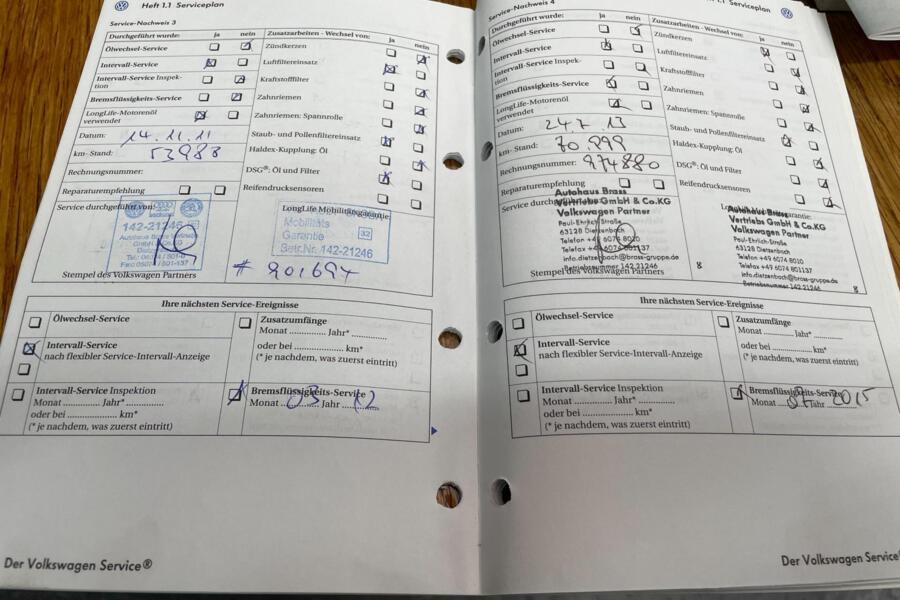 Heft 1.1 Serviceplan
Service-Nachweis 3
Durchgeführt wurde: ja nein
Zusatzarbeiten - Wechsel von: ja nein
Ölwechsel-Service
Intervall-Service
Intervall-Service Inspek-
tion
Bremsflüssigkeits-Service
LongLife-Motorenöl
verwendet
Datum: 14.11.11
km-Stand: 53983
Rechnungsnummer:
Reparaturempfehlung
Zündkerzen
Luftfiltereinsatz
Kraftstofffilter
Zahnriemen
Zahnriemen: Spannrolle
Staub- und Pollenfiltereinsatz
Haldex-Kupplung: Öl
DSG®: Öl und Filter
Reifendrucksensoren
Service durchgeführt von:
142-21246
LongLife Mobilitätsgarantie
Mobilitäts
Garantie 32
Betr.Nr. 142-21246
Stempel des Volkswagen Partners
# 901694
Ihre nächsten Service-Ereignisse
Ölwechsel-Service
Intervall-Service
nach flexibler Service-Intervall-Anzeige
Zusatzumfänge
Monat ............... Jahr* ...............
oder bei .............................. km*
(* je nachdem, was zuerst eintritt)
Intervall-Service Inspektion
Monat ............... Jahr* ...............
oder bei .............................. km*
(* je nachdem, was zuerst eintritt)
Bremsflüssigkeits-Service
Monat 03 Jahr 12
Der Volkswagen Service®
1.1 Serviceplan
Service-Nachweis 4
Durchgeführt wurde: ja nein
Zusatzarbeiten - Wechsel von: ja nein
Ölwechsel-Service
Intervall-Service
Intervall-Service Inspek-
tion
Bremsflüssigkeits-Service
LongLife-Motorenöl
verwendet
Datum: 24 7. 13
km-Stand: 70.999
Rechnungsnummer: 974880
Reparaturempfehlung
Zündkerzen
Luftfiltereinsatz
Kraftstofffilter
Zahnriemen
Zahnriemen: Spannrolle
Staub- und Pollenfiltereinsatz
Haldex-Kupplung: Öl
DSG®: Öl und Filter
Reifendrucksensoren
Autohaus Brass
Vertriebs GmbH & Co.KG
Volkswagen Partner
Paul-Ehrlich-Straße
63128 Dietzenbach
Telefon +49 6074 8010
Telefax +49 6074 801137
info.dietzenbach@brass-gruppe.de
Betriebsnummer 142 21246
Stempel des Volkswagen Partners
8
Autohaus Brass
Vertriebs GmbH & Co.KG
Volkswagen Partner
Paul-Ehrlich-Straße
63128 Dietzenbach
Telefon +49 6074 8010
Telefax +49 6074 801137
info.dietzenbach@brass-gruppe.de
Betriebsnummer 142 21246
8
Ihre nächsten Service-Ereignisse
Ölwechsel-Service
Intervall-Service
nach flexibler Service-Intervall-Anzeige
Zusatzumfänge
Monat ............... Jahr* ...............
oder bei .............................. km*
(* je nachdem, was zuerst eintritt)
Intervall-Service Inspektion
Monat ............... Jahr* ...............
oder bei .............................. km*
(* je nachdem, was zuerst eintritt)
Bremsflüssigkeits-Service
Monat 07 Jahr 2015
Der Volkswagen Service